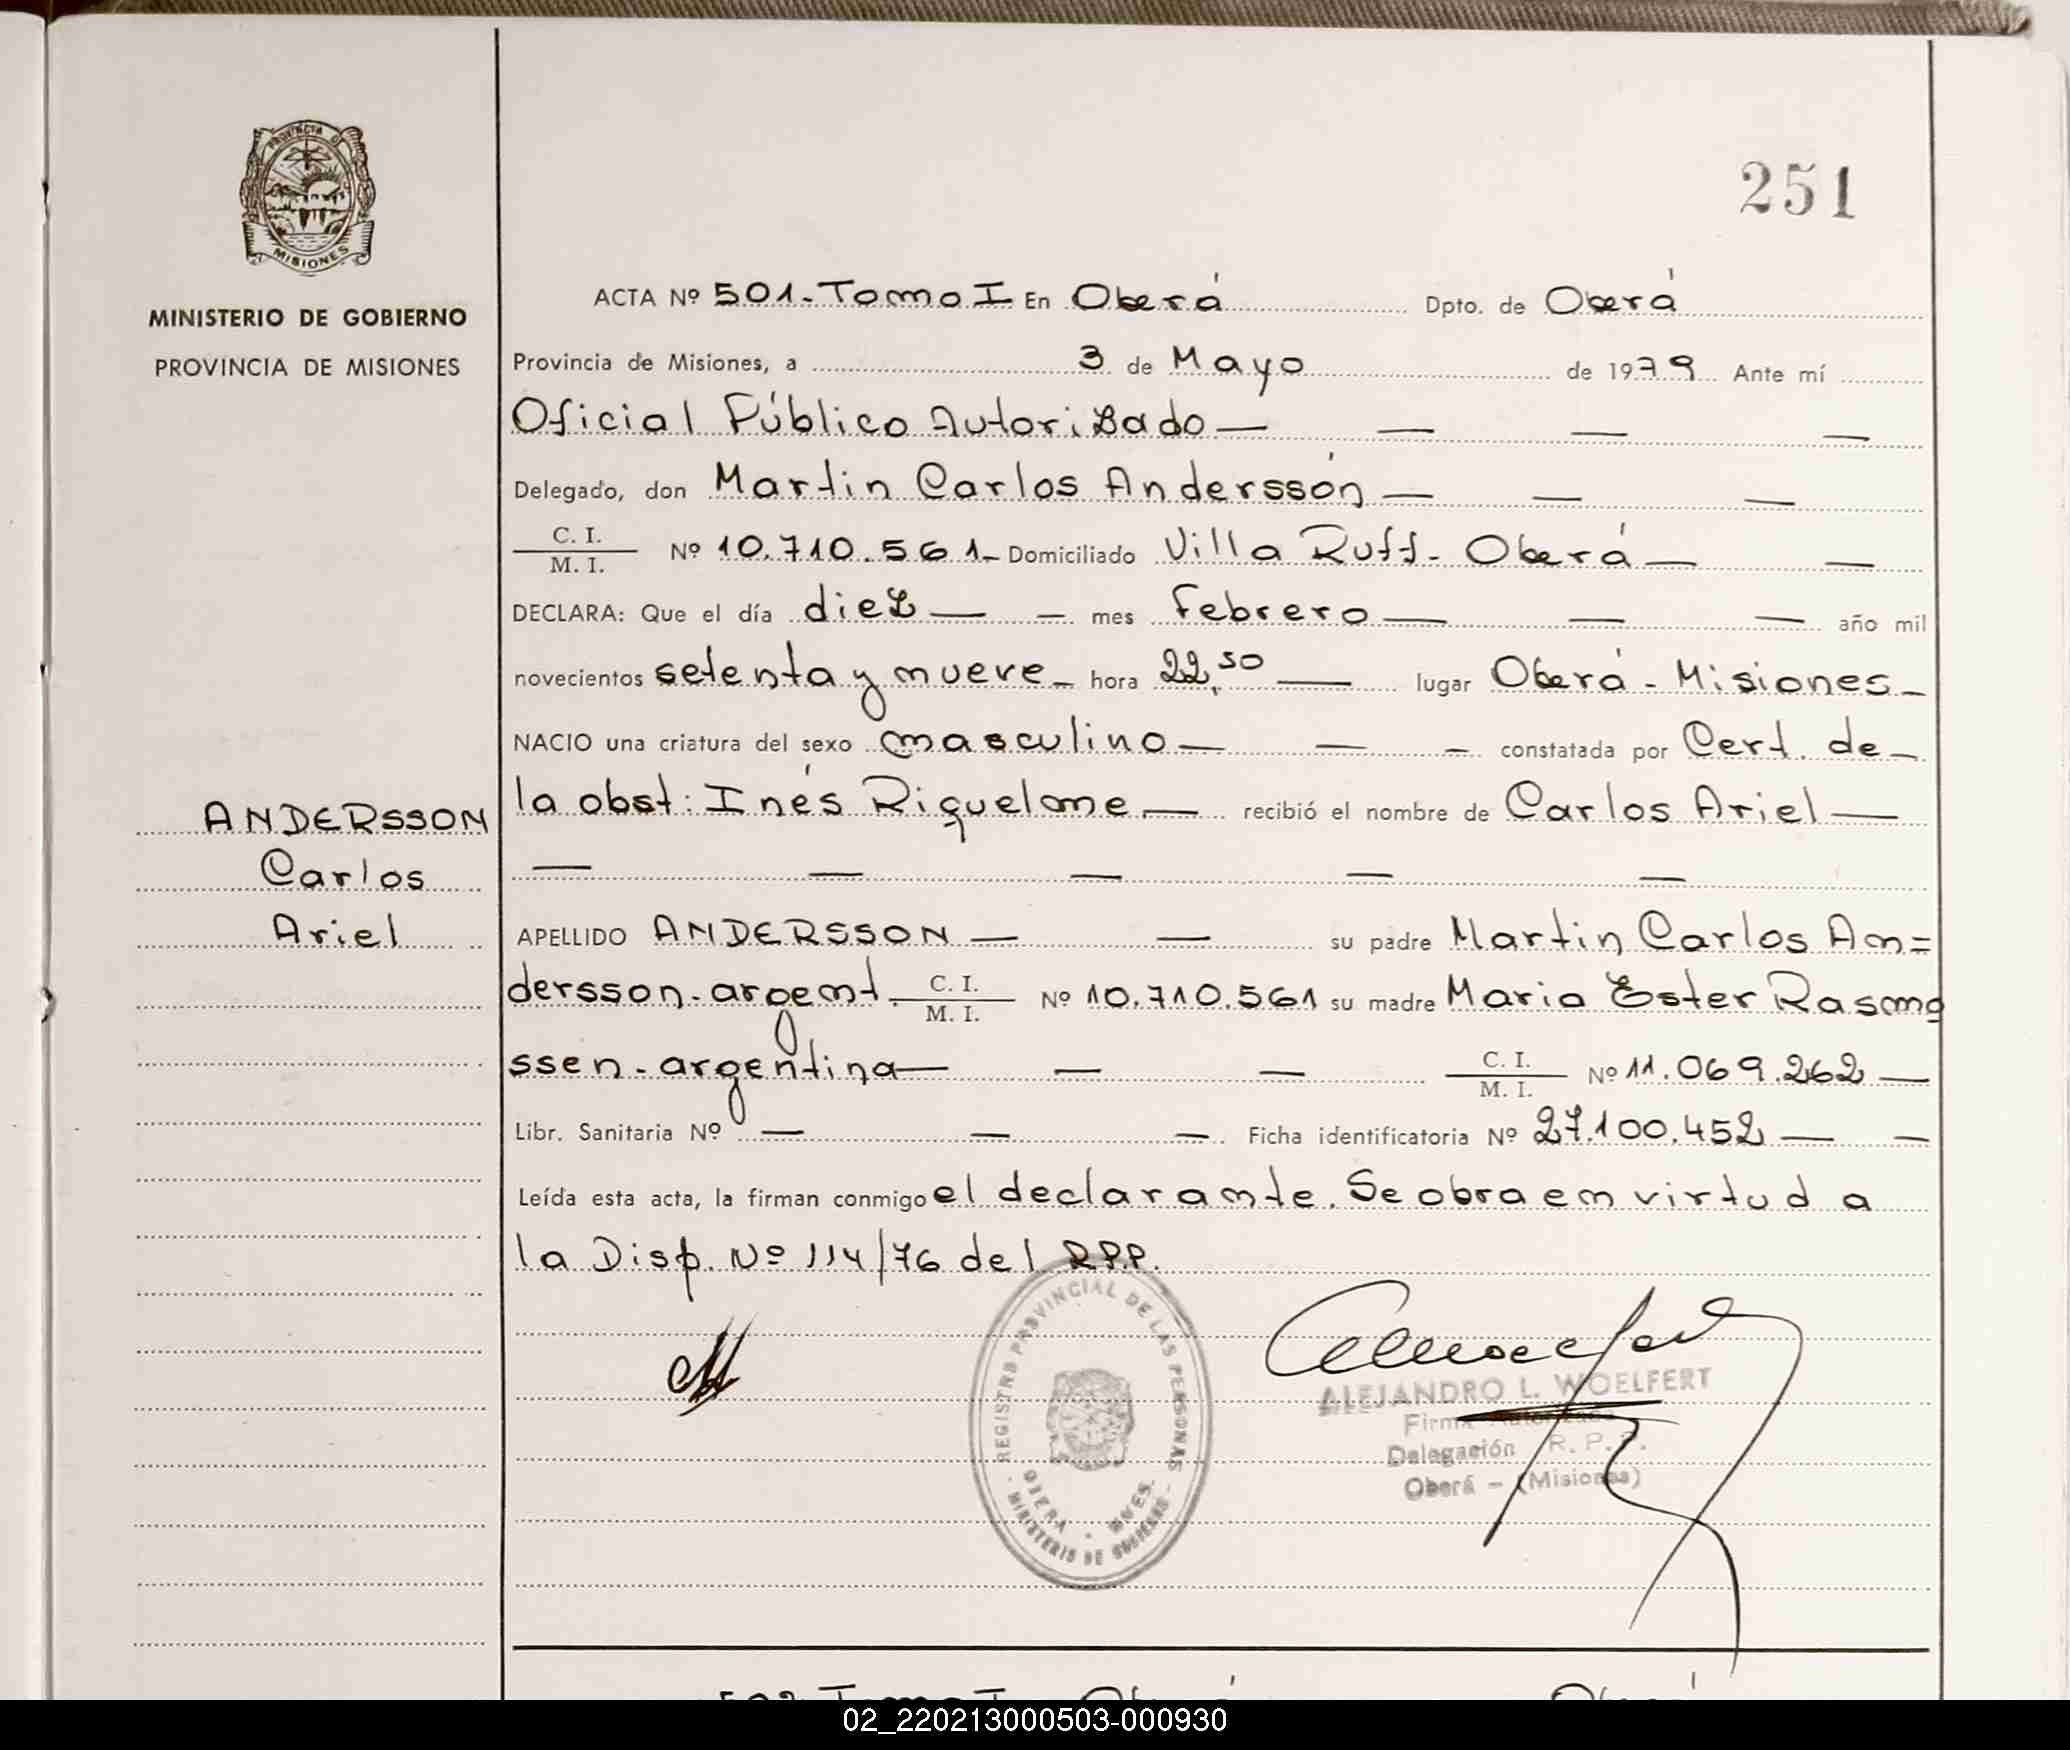 251
PROVINCIA DE
MISIONES
MINISTERIO DE GOBIERNO
PROVINCIA DE MISIONES
ANDERSSON
Carlos
Ariel
ACTA Nº 501-Tomo I En Oberá Dpto. de Oberá
Provincia de Misiones, a 3 de Mayo de 1979 Ante mí
Oficial Público Autorizado — — — —
Delegado, don Martin Carlos Anderssón — — —
C. I.
M. I. Nº 10.710.561- Domiciliado Villa Ruff - Oberá — —
DECLARA: Que el día diez — — mes Febrero — — — año mil
novecientos setenta y nueve - hora 22,50 — lugar Oberá - Misiones -
NACIO una criatura del sexo masculino — — - constatada por Cert. de -
la obst: Inés Riquelme — recibió el nombre de Carlos Ariel —
— — — — —
APELLIDO ANDERSSON — — su padre Martin Carlos An=
dersson - argent. C. I.
M. I. Nº 10.710.561 su madre Maria Ester Rasmu
ssen - argentina — — — C. I.
M. I. Nº 11.069.262 —
Libr. Sanitaria Nº — — — Ficha identificatoria Nº 27.100.452 — —
Leída esta acta, la firman conmigo el declarante. Se obra en virtud a
la Disp. Nº 114/76 del R.P.P.
REGISTRO PROVINCIAL DE LAS PERSONAS
OBERA - MNES.
MINISTERIO DE GOBIERNO
ALEJANDRO L. WOELFERT
Firma Autorizada
Delegación R. P. P.
Oberá - (Misiones)
02_220213000503-000930